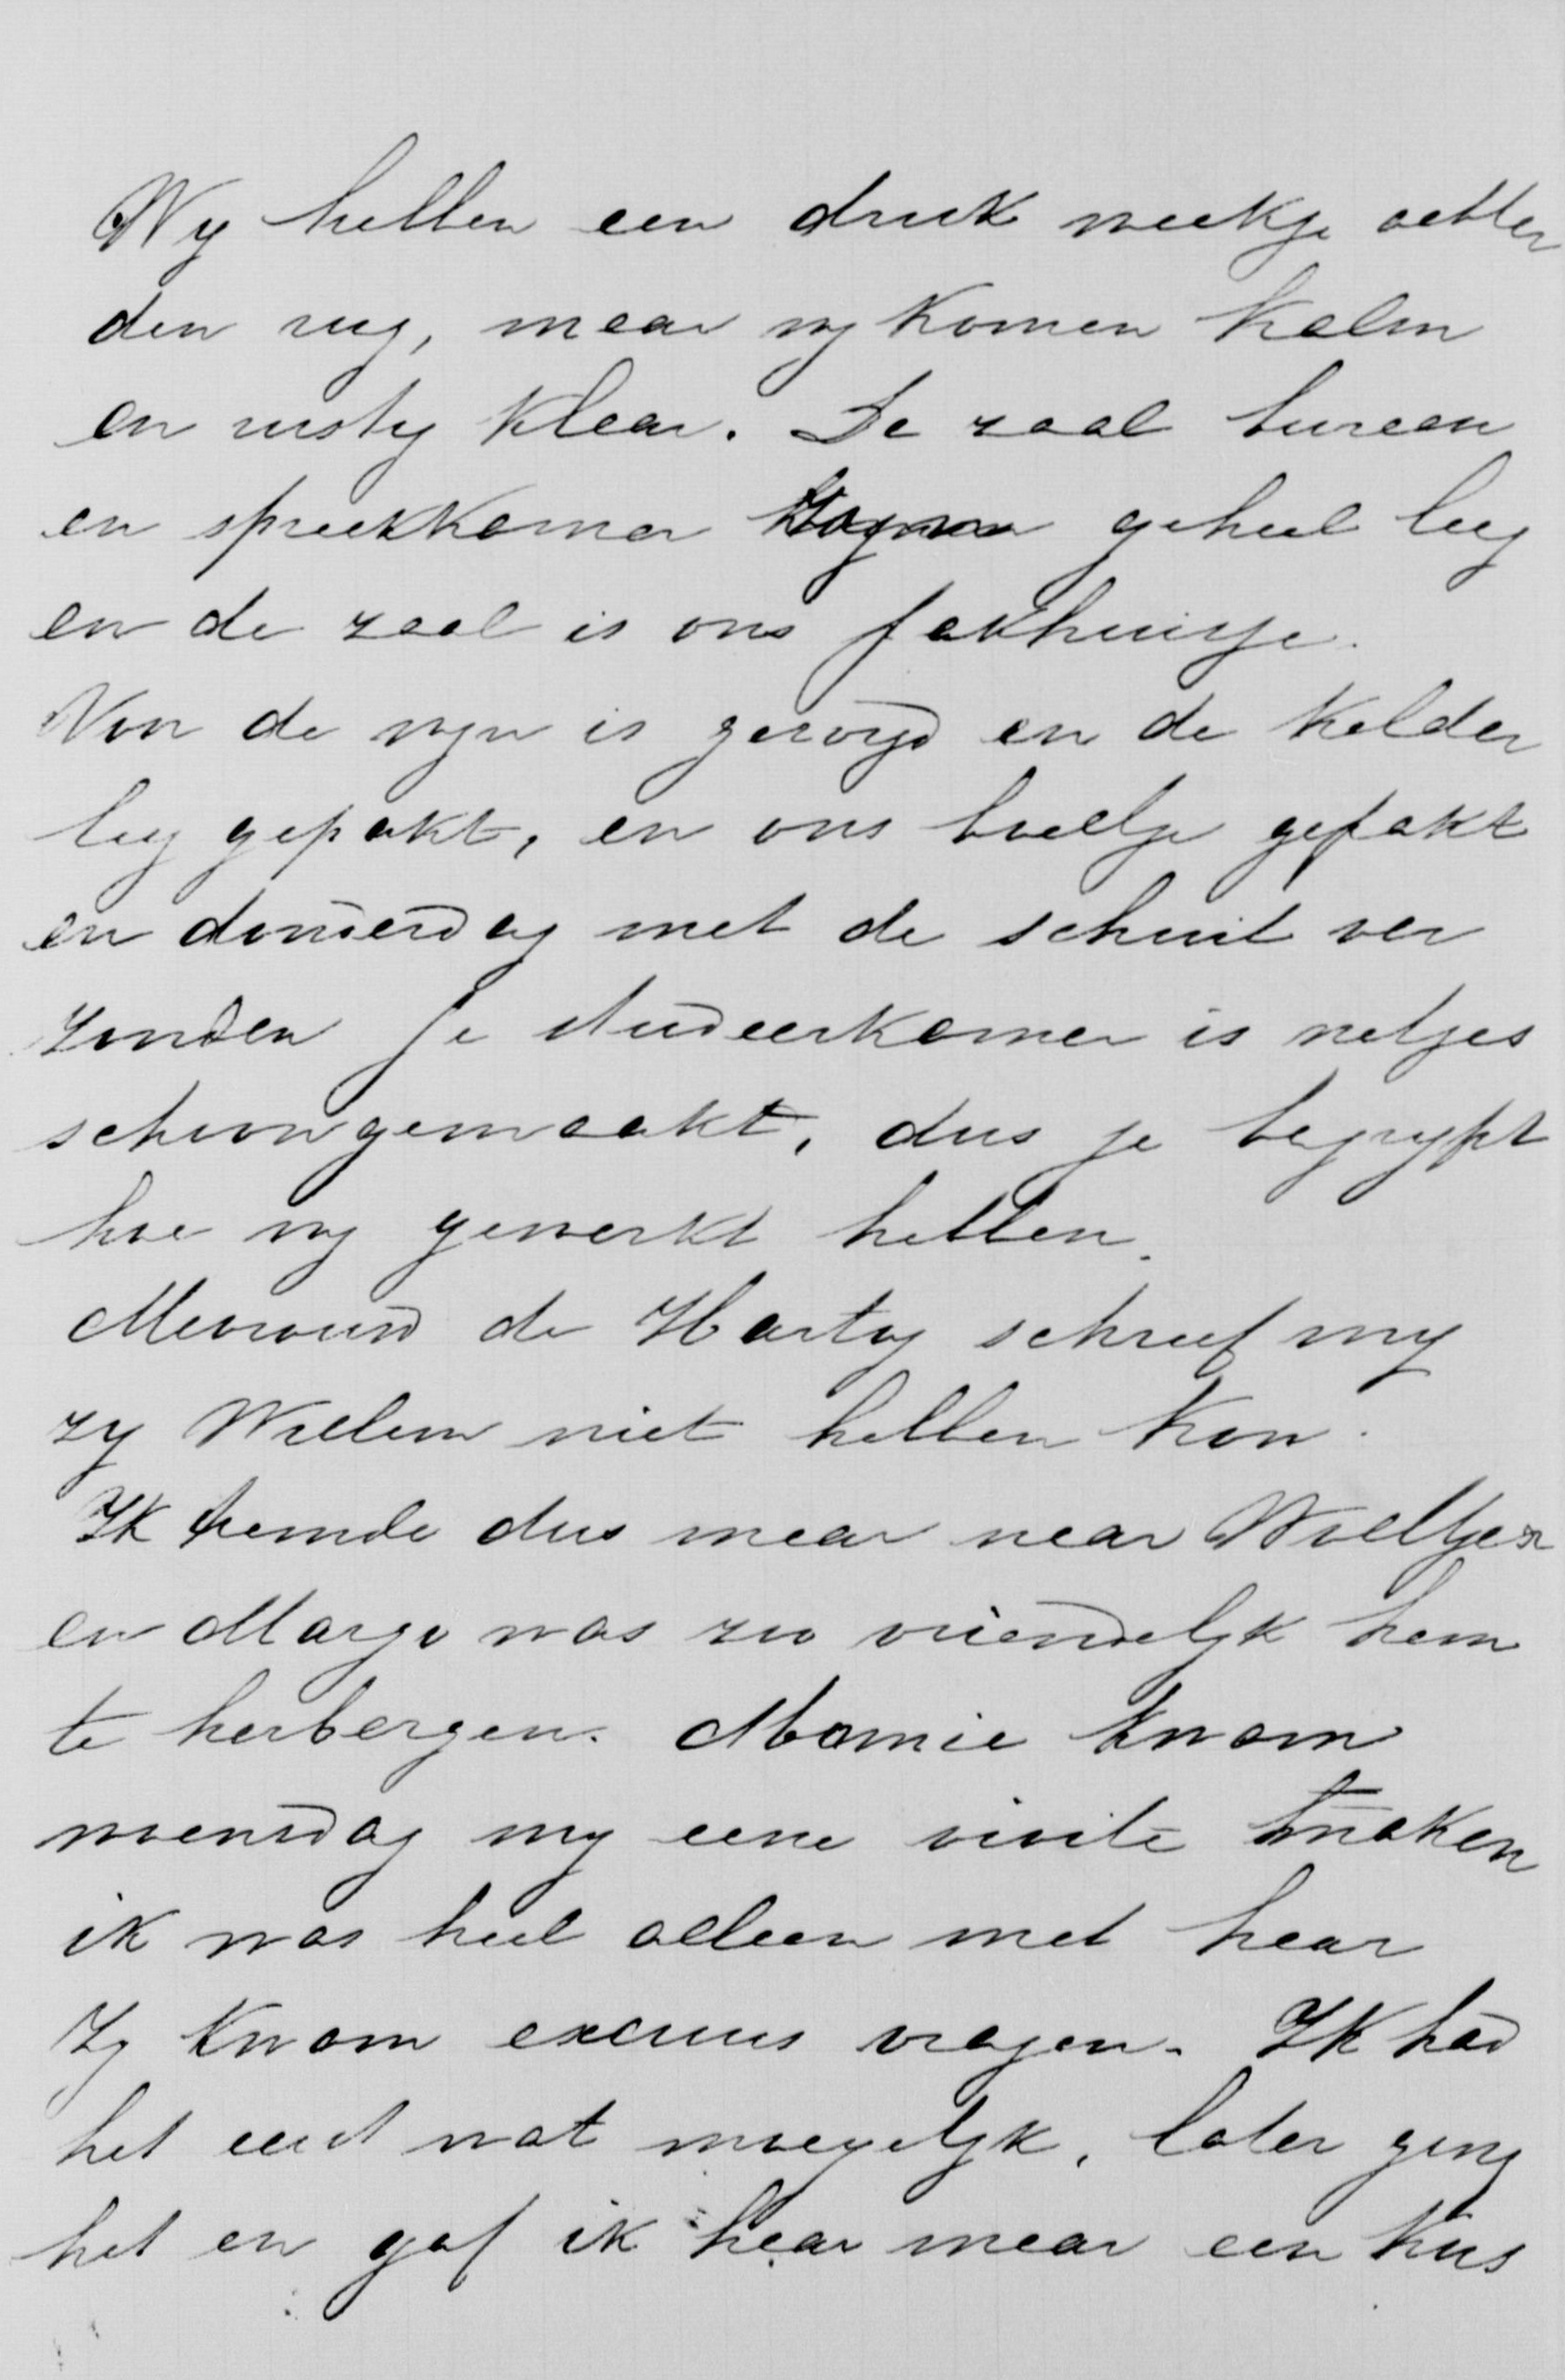 Wy hebben een druk weekje achter
den rug, maar wy komen kalm
en rustig klaar. De zaal bureau
en spreekkamer zyn geheel leeg
en de zaal is ons pakhuisje.
Van de wyn is gezorgd en de kelder
leeg gepakt, en ons boeltje gepakt
en donderdag met de schuit ver
zonden Je studeerkamer is netjes
schoongemaakt, dus je begrypt
hoe wy gewerkt hebben.
Mevrouw de Hartog schreef my
zy Willem niet hebben kon.
Ik seinde dus maar naar Woltjer
en Margo was zoo vriendelyk hem
te herbergen. Mamie kwam
woensdag my eene visite maken
ik was heel alleen met haar
Zy kwam excuus vragen. Ik had
het eerst wat moeyelyk, later ging
het en gaf ik haar maar een kus